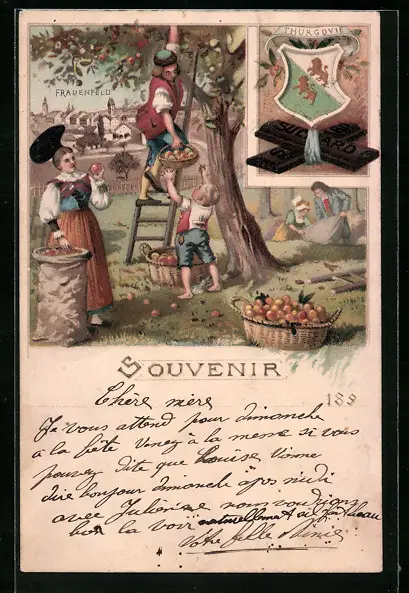 FRAUENFELD
THURGOVIE
SUCHARD
SOUVENIR
189
Chère mère
Je vous attend pour dimanche
à la fête Venez à la messe si vous
pouvez dite que Louise vienne
dire bonjour dimanche apos midi
avec Julienne nous voudrions
bien la voir naturellement
Votre fille